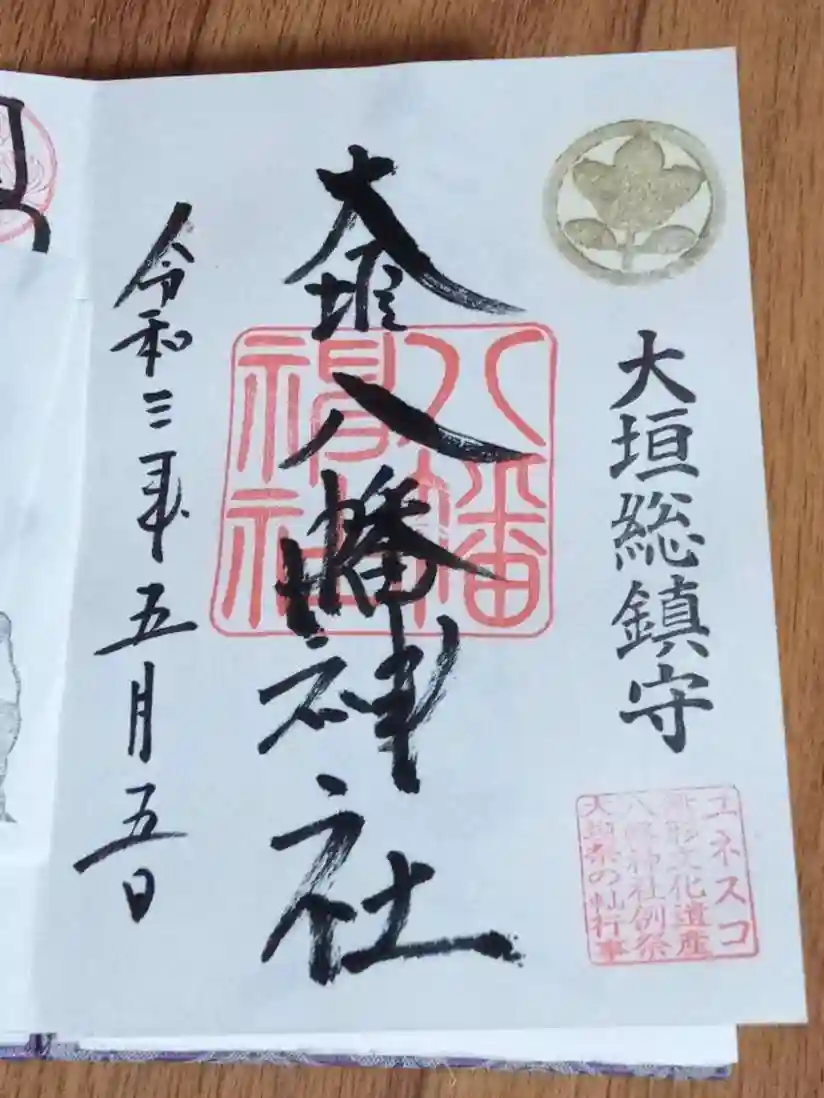 大垣総鎮守
ユネスコ
無形文化遺産
八幡神社例祭
大垣祭の𨋳行事
大垣八幡神社
八幡
神社
令和三年五月五日